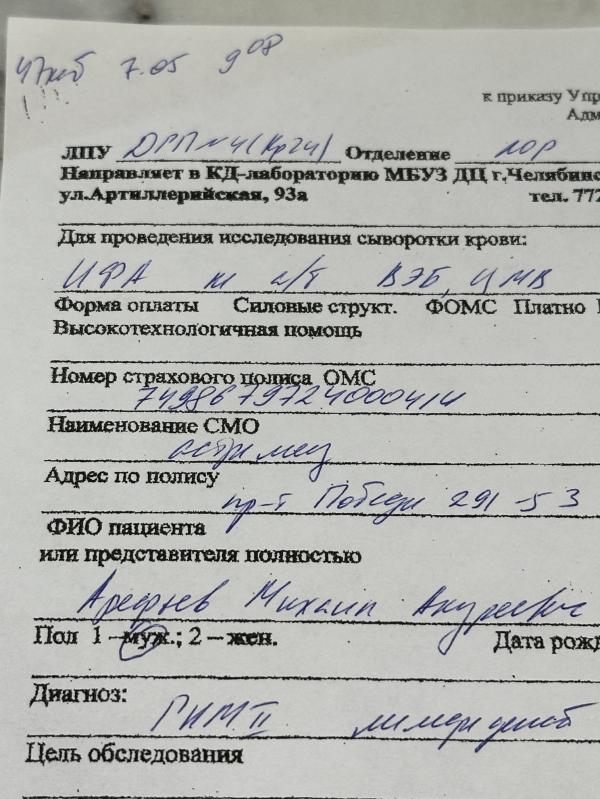 47каб 7.05 9 08
!!!
к приказу Упр
Адм
ЛПУ Отделение лор
Направляет в КД-лабораторию МБУЗ ДЦ г.Челябинс
ул.Артиллерийская, 93а тел. 772
Для проведения исследования сыворотки крови:
ИФА а/т ВЭБ, ЦМВ
Форма оплаты Силовые структ. ФОМС Платно
Высокотехнологичная помощь
Номер страхового полиса ОМС
Наименование СМО
астрамед
Адрес по полису
пр-т Победы 291-53
ФИО пациента
или представителя полностью
Арефьев Михаил Андреевич
Пол 1 – муж.; 2 – жен. Дата рожд
Диагноз:
ГНМ II лимфаденоб
Цель обследования